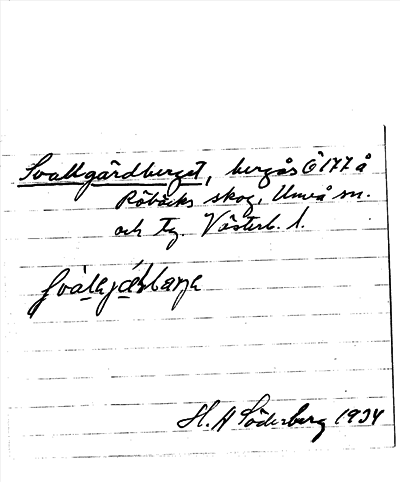 Svallgårdberget, bergås Ö 177 å
Röbäcks skog, Umeå sn.
och tg. Västerb. l.
H. A Söderberg 1934